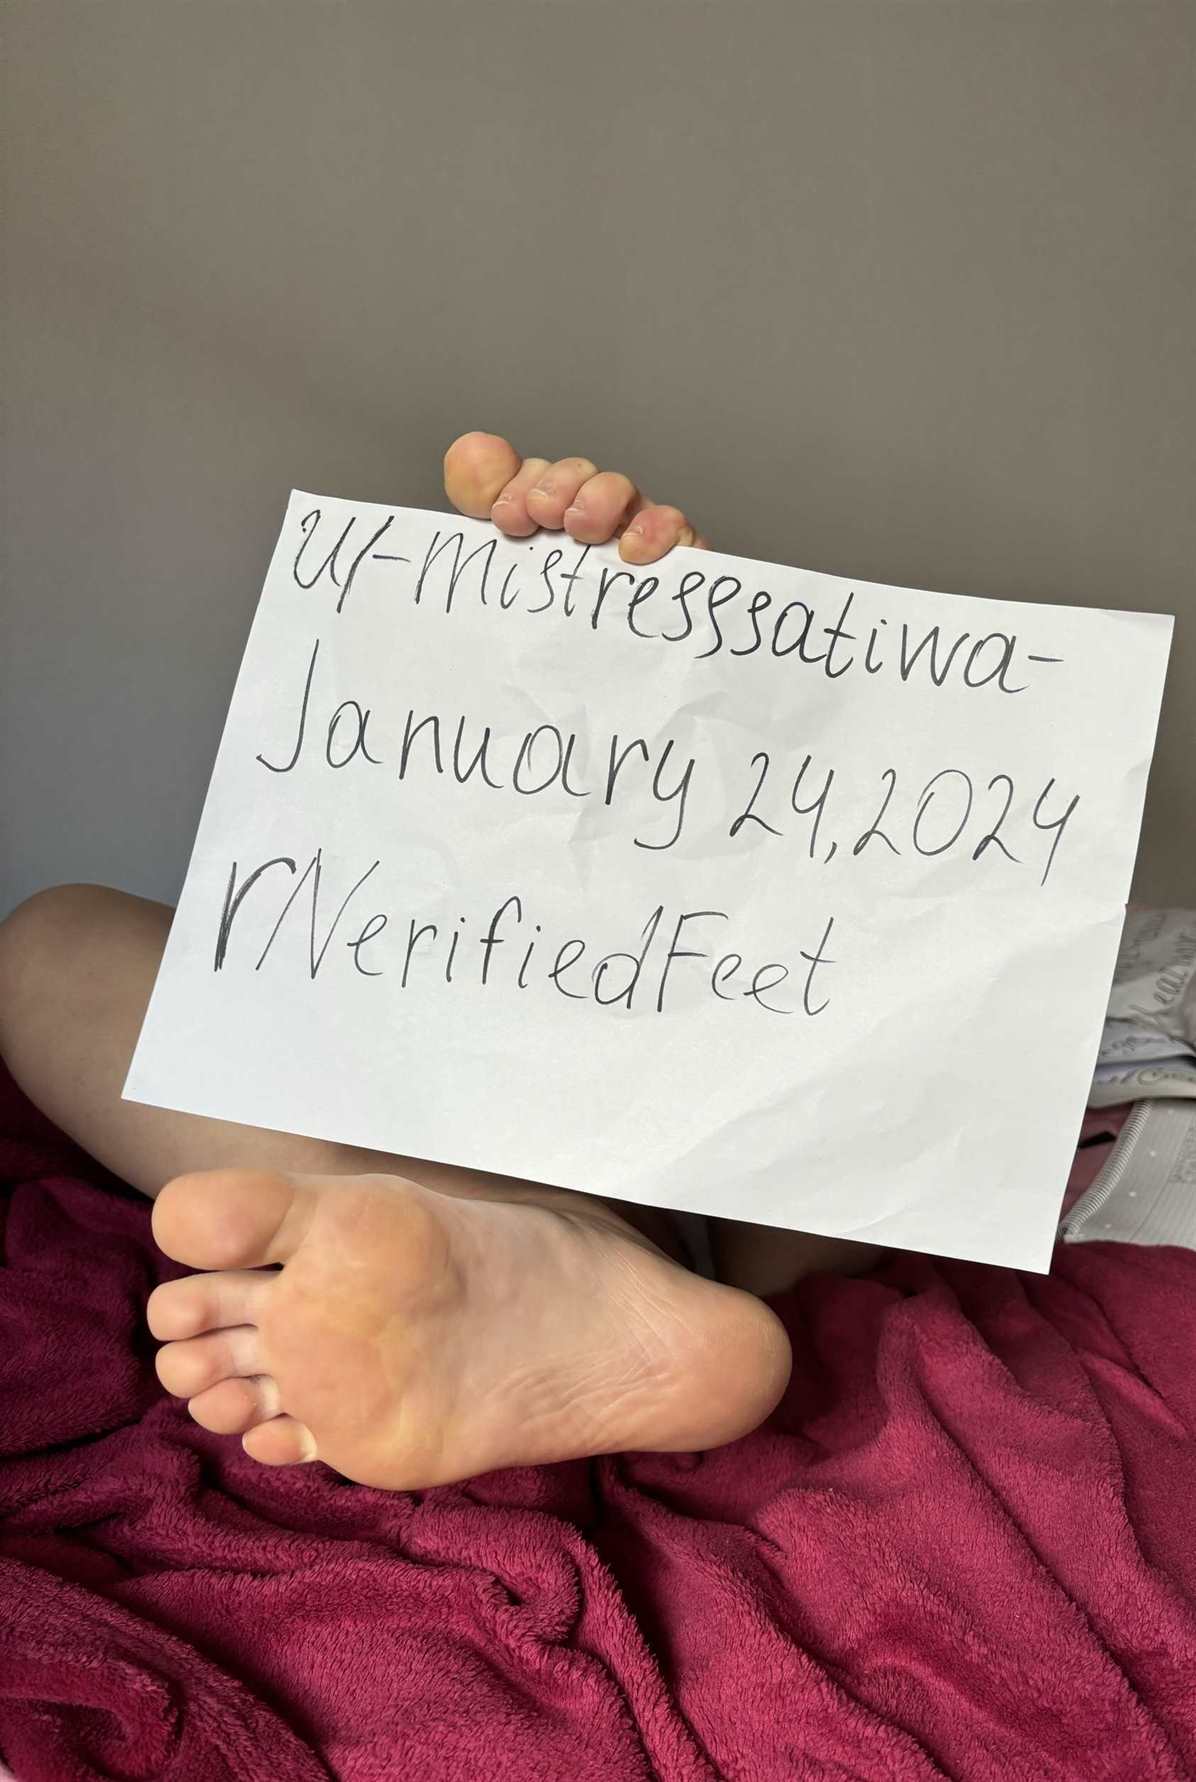 u/-mistresssatiwa-
January 24,2024
r/VerifiedFeet